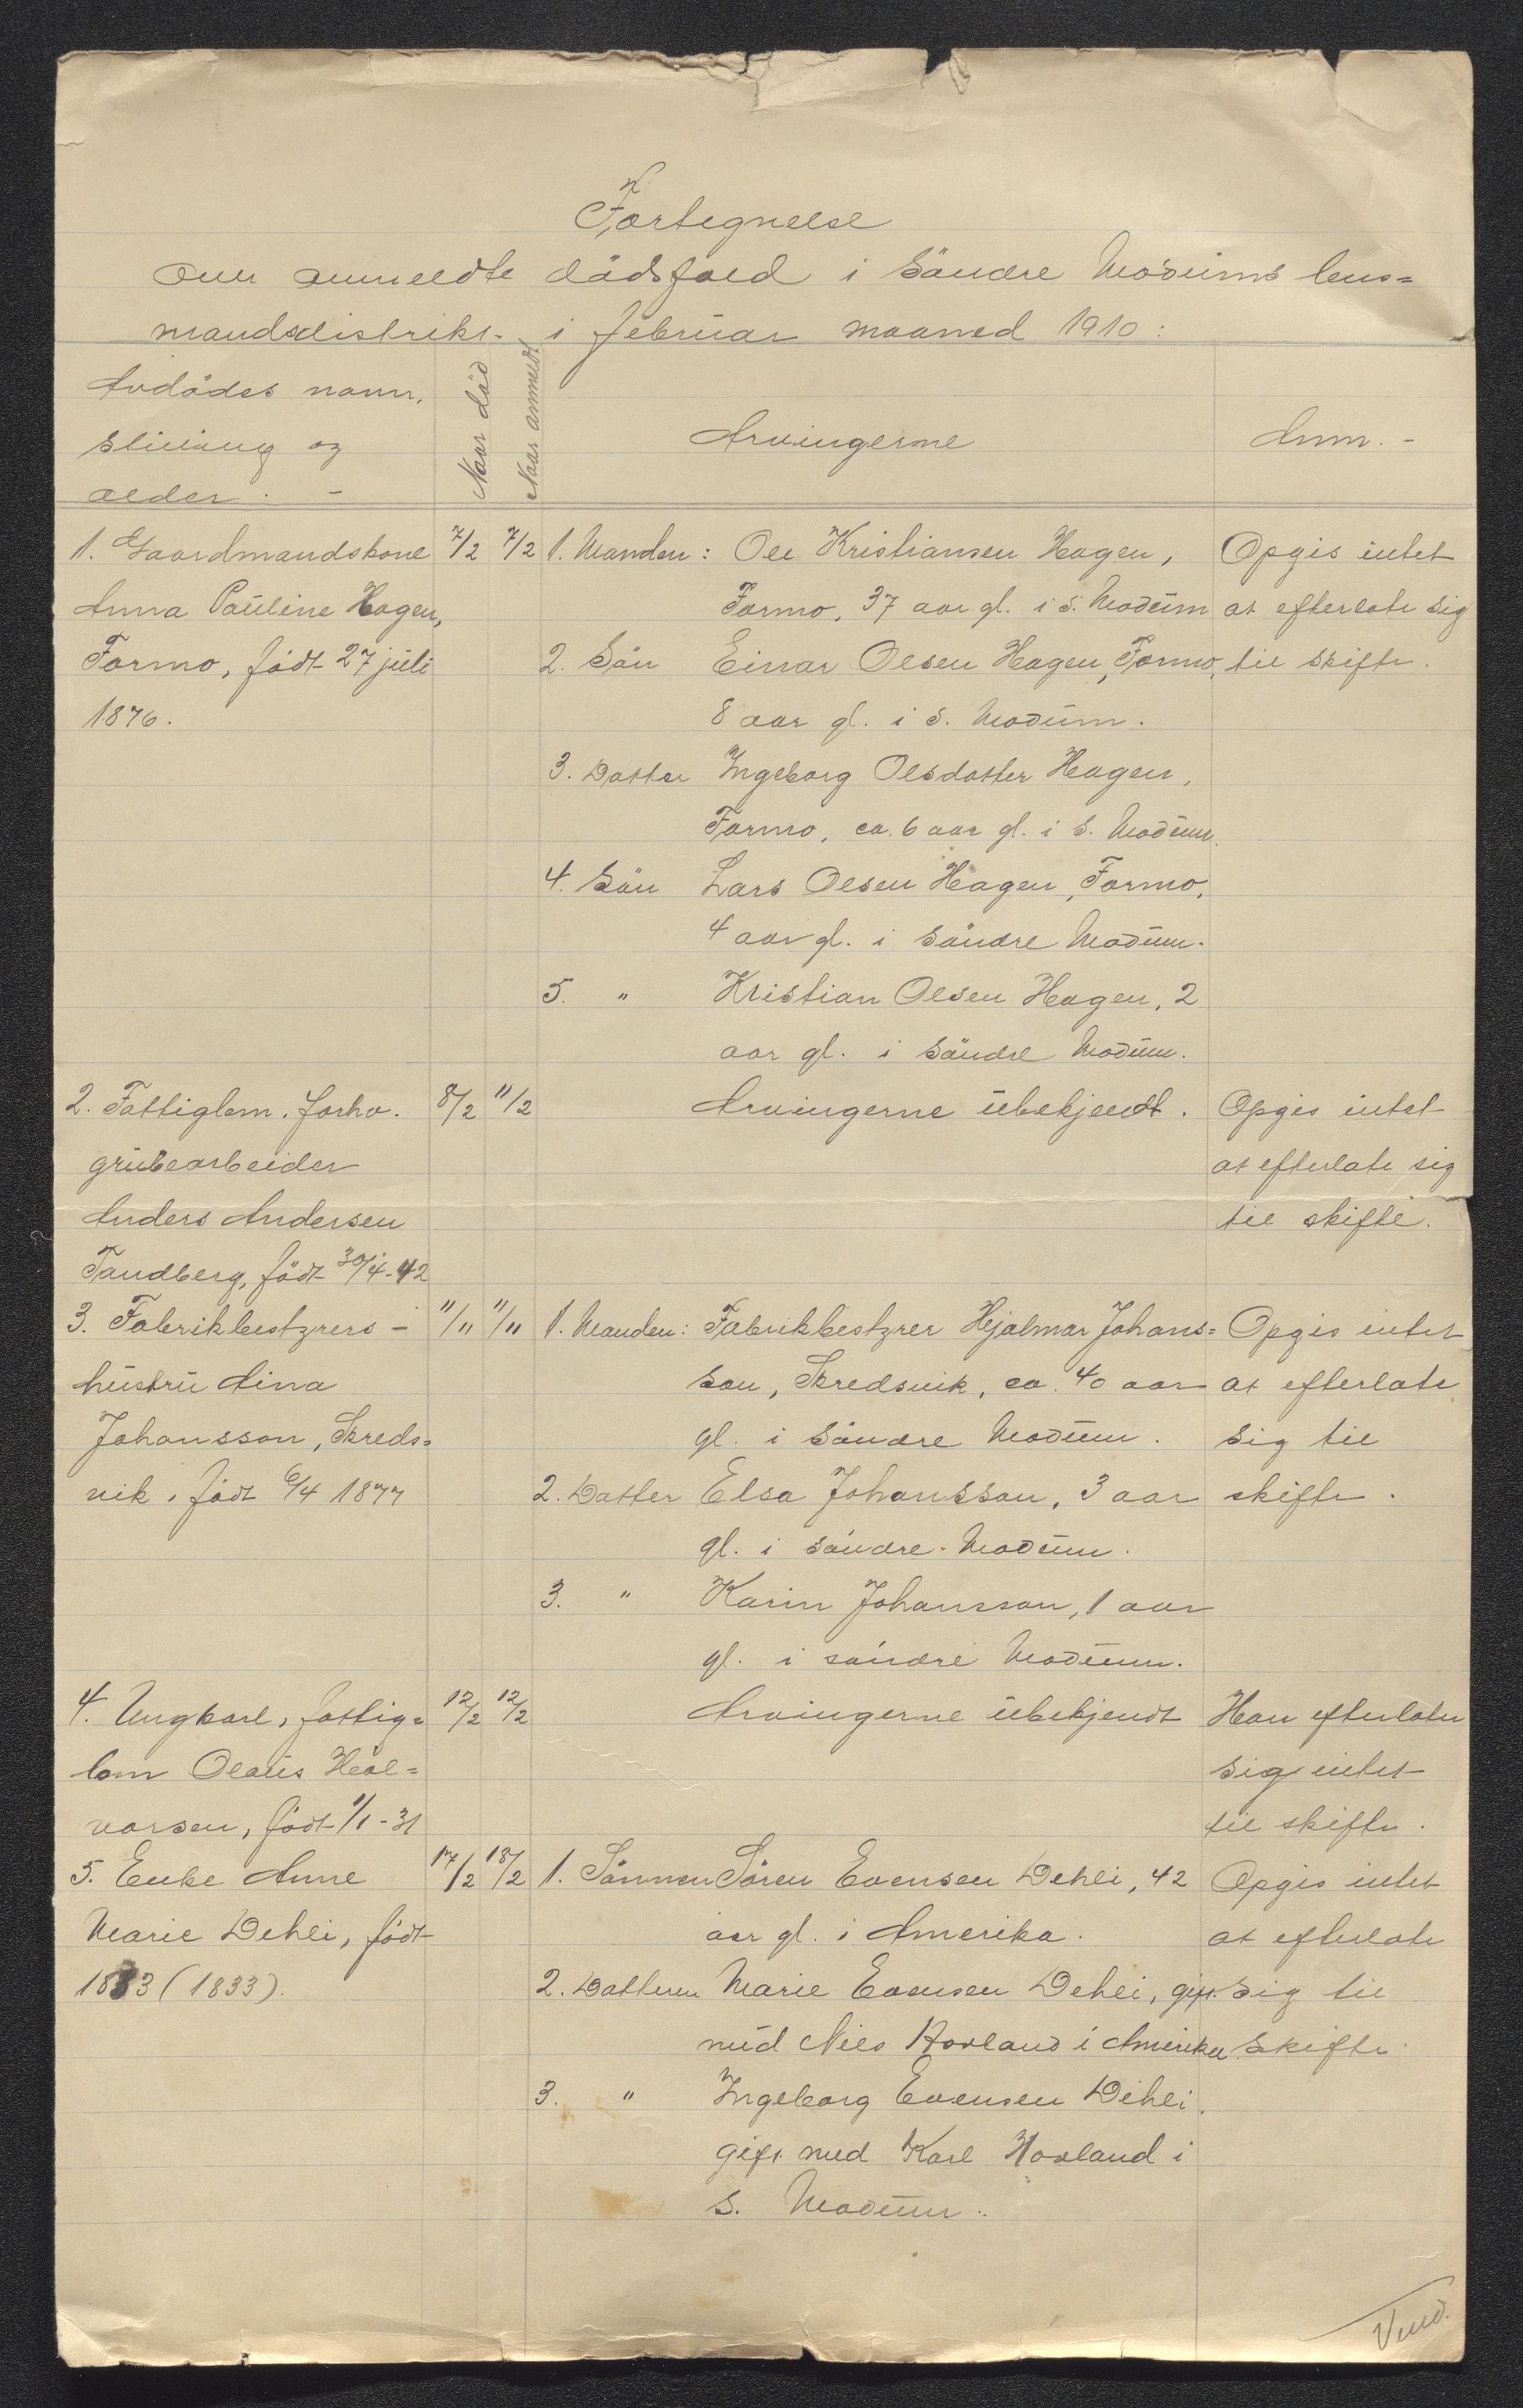 Fortegnelse
over anmeldte dödsfald i Söndre Modums lens=
mandsdistrikt i februar maaned 1910:
Avdödes navn,
stilling og
alder. -
Naar död
Naar anmeldt
Arvingerne
Anm. -
1. Gaardmandskone
Anna Pauline Hagen,
Formo, født 27 juli
1876.
7/2 7/2
1. Manden: Ole Kristiansen Hagen,
Formo, 37 aar gl. i S. Modum
2. Sön Einar Olsen Hagen, Formo,
8 aar gl. i S. Modum.
3. Datter Ingeborg Olsdatter Hagen,
Formo, ca. 6 aar gl. i S. Modum.
4. Sön Lars Olsen Hagen, Formo,
4 aar gl. i Söndre Modum.
5. " Kristian Olsen Hagen, 2
aar gl. i Söndre Modum.
Opgis intet
at efterlate sig
til skifte.
2. Fattiglem. forhv.
grubearbeider
Anders Andersen
Tandberg, født 30/4-42
8/2 11/2
Arvingerne ubekjendt.
Opgis intet
at efterlate sig
til skifte.
3. Fabrikbestyrers -
hustru Aina
Johansson, Skreds=
vik, født 6/4 1877
11/11 11/11
1. Manden: Fabrikbestyrer Hjalmar Johans=
son, Skredsvik, ca. 40 aar
gl. i Söndre Modum.
2. Datter Elsa Johansson, 3 aar
gl. i Söndre Modum.
3. " Karin Johansson, 1 aar
gl. i söndre Modum.
Opgis intet
at efterlate
sig til
skifte.
4. Ungkarl, fattig=
lem Olaus Hal=
vorsen, født 1/1-31
12/2 12/2
Arvingerne ubekjendt
Han efterlater
sig intet
til skifte.
5. Enke Anne
Marie Dehli, født
1833 (1833).
17/2 18/2
1. Sönnen Sören Evensen Dehli, 42
aar gl. i Amerika.
2. Datteren Marie Evensen Dehli, gift
med Nils Hovland i Amerika.
3. " Ingeborg Evensen Dehli,
gift med Karl Hovland i
S. Modum.
Opgis intet
at efterlate
sig til
skifte.
Vend.